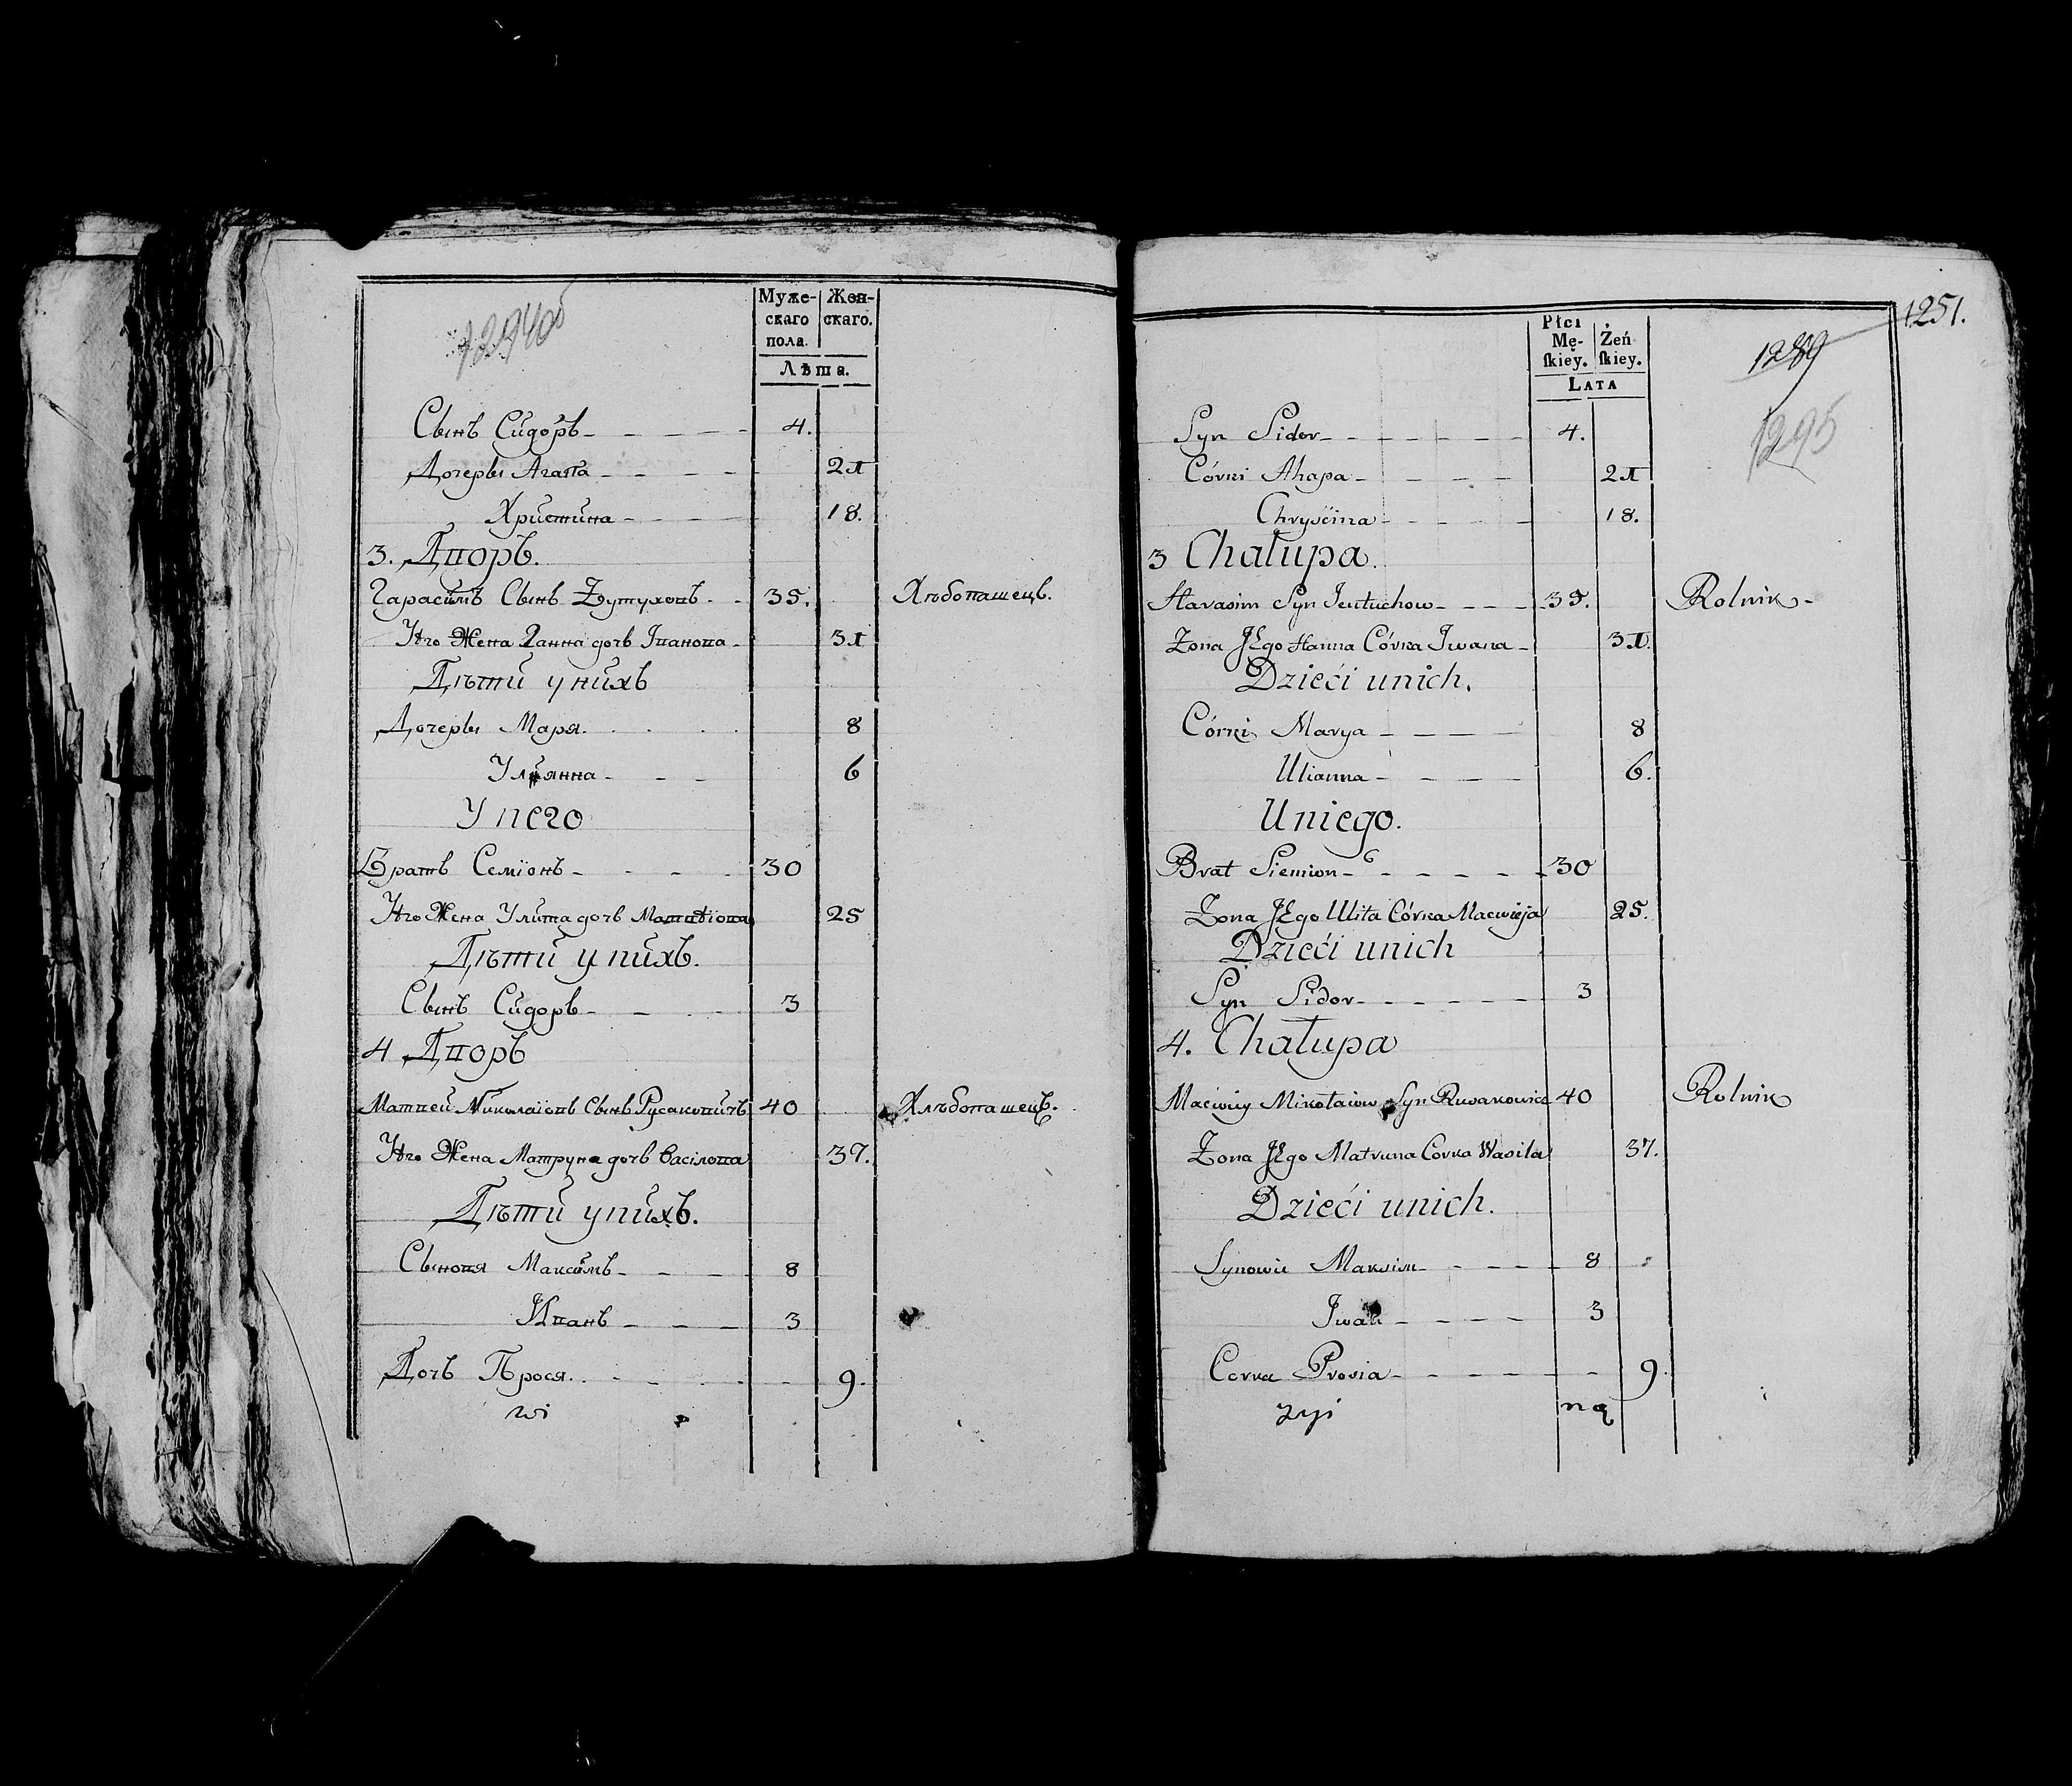 1294об
Муже-
скаго
пола.
Жен-
скаго.
Лѣта.
Сынъ Сидоръ 4.
Дочеры Агапа 21
Христина 18.
3. Дворъ.
Гарасимъ Сынъ Евтуховъ 35. Хлѣбопашецъ.
Его Жена Ганна дочь Іванова 31
Дѣти у нихъ
Дочеры Маря 8
Улянна 6
У него
Братъ Семіонъ 30
Его Жена Улита дочь Матвѣіова 25
Дѣти у нихъ.
Сынъ Сидоръ 3
4 Дворъ
Матвей Николаіовъ Сынъ Русаковичъ 40 Хлѣбопашецъ.
Его Жена Матруна дочь Васілова 37.
Дѣти у нихъ.
Сыновя Максимъ 8
Иванъ 3
Дочь Прося 9.
1251.
1289
1295
Płci
Mę-
ſkiey.
Żeń
ſkiey.
LATA
Syn Sidor 4.
Córki Ahapa 21
Chryścina 18.
3 Chałupa.
Harasim Syn Jeutuchow 35. Rolnik
Zona JEgo Hanna Córka Jwana 31.
Dzieći unich.
Córki Marya 8
Ulianna 6.
Uniego.
Brat Siemion 30
Zona JEgo Ulita Córka Macwieja 25.
Dzieći unich
Syn Sidor 3
4. Chałupa
Maćwiey Mikołaiow Syn Rusakowicz 40 Rolnik
Zona JEgo Matruna Corka Wasila 37.
Dzieći unich.
Synowie Maksim 8
Jwan 3
Corka Prosia 9.